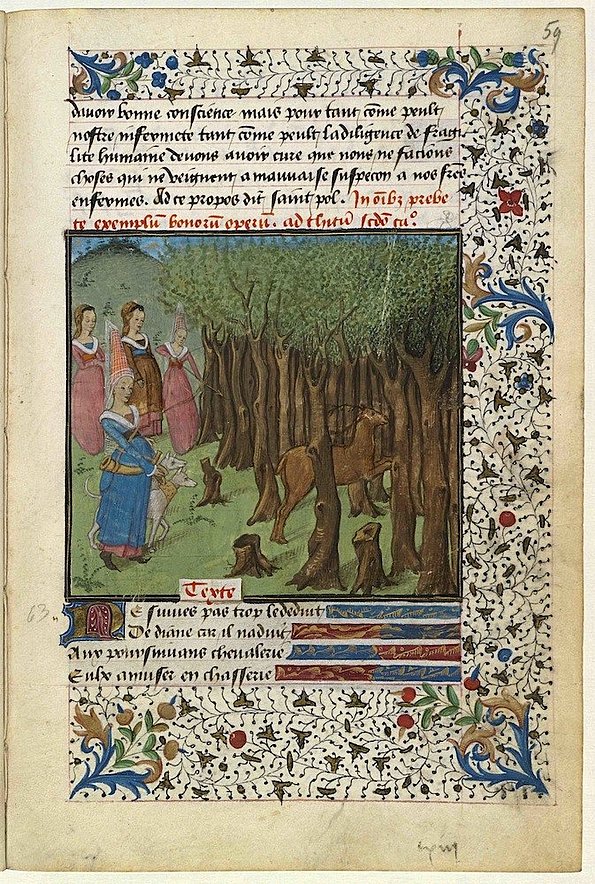 59
davoir bonne conscience mais pour tant cõme peult
nostre infermete tant cõme peult la diligence de fragi
lite humaine devons avoir cure que nous ne facions
choses qui ne veignent a mauvaise suspecon a nos freres
enfermes. Ad ce propos dit saint pol. In oĩbz prebe
te exemplum bonorũ operũ. ad thitũ
Texte
Ne suives pas trop le deduit
De diane car il naduit
Aux poursuivans chevalerie
Eulx amuser en chasserie
63